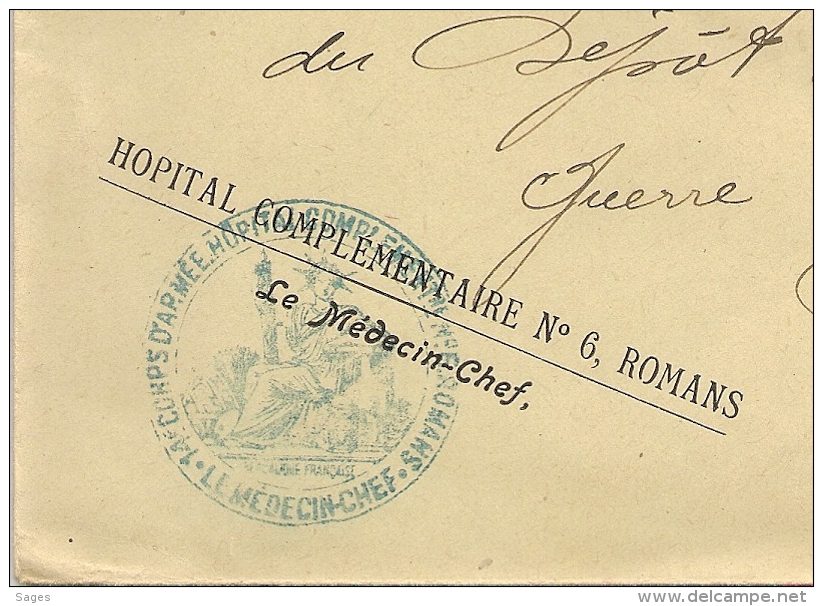 du Dépôt
Guerre
HOPITAL COMPLÉMENTAIRE Nº 6, ROMANS
Le Médecin-Chef,
14e CORPS D'ARMÉE. HOPITAL COMPLÉMENTAIRE Nº 6. ROMANS
• LE MÉDECIN-CHEF •
RÉPUBLIQUE FRANÇAISE
Sages
www.delcampe.net